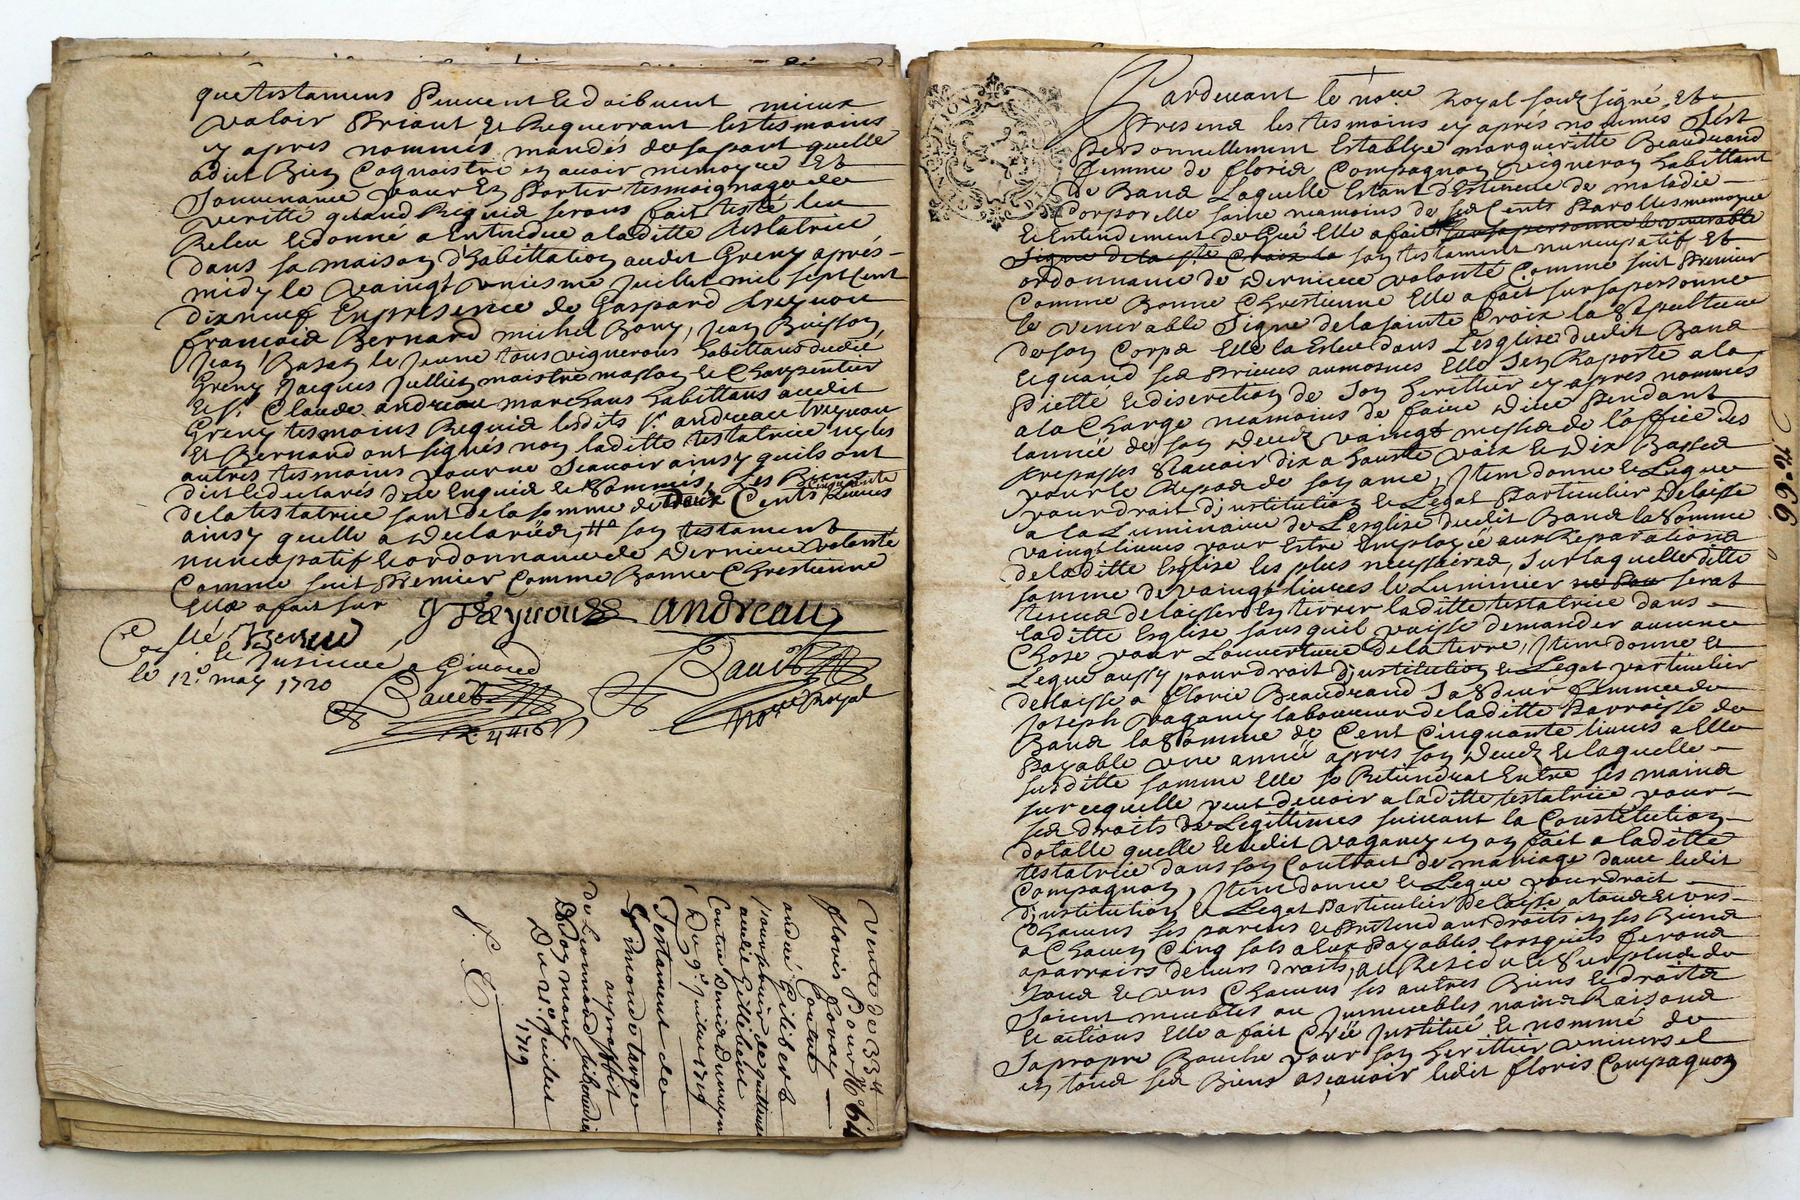 que testamens Peuvent et doibvent mieux
valoir Priant et Requerrant les tesmoins
cy apres nommés mandés de sa part quelle
a dit Bien Cognoistre en avoir memoyre Et
Souvenance pour En Porter tesmoignage de
veritté quand Requis serons fait
Releu et donné a Entendre a laditte testatrice
dans sa maison d'habittation audit Greny aprés
midy le vaingt uniesme Juillet mil sept cent
dix neuf En presence de Gaspard treynou
françois Bernard michel Bony, Jean Buisson,
Jean le Jeune tous vignerons habittans dudit
Greny Jacques Jullien maistre masson et Charpentier
et sr. Claude andreau marchans habittans audit
Greny tesmoins Requis lesdits sr. andreau treynou
Et Bernard ont signés non laditte testatrice ny les
autres tesmoins pour ne scavoir ainsy quils ont
dit et declarés de ce Enquis et Sommés, Les Biens
de la testatrice sont de la somme de deux Cents cinquante livres
ainsy quelle a declarée, son testament
nuncupatif et ordonnance de derniere volonté
Comme suit Premier Comme Bonne Chrestienne
Elle a fait sur
g treynoud andreau
le 12e. may 1720
Not. Royal
Vente de 33 #
Pour floris
Contre
andré Gilibert
Contre
Du 9e Juillet 1719
Testament de
Simond targe
au proffit
de Leonnard
Du 21e. Juillet
1719
No 64
Pardevant le no.re Royal soubsigné, Et
Presens les tesmoins cy aprés nommés S'est
Personnellement Establye margueritte Beaudrand
femme de Floris Compagnon vigneron habittant
de Bans Laquelle Estant destenue de maladie
Corporelle saine neamoins de ses Cents Parolles memoyre
Et Entendement de Gré Elle a fait sur sa personne le venerable
Signe de la Ste Croix la son testament nuncupatif Et
ordonnance de derniere volonté Comme suit Premier
Comme Bonne Chrestienne Elle a fait sur sa personne
le venerable Signe de la sainte Croix la Sepulture
de son Corps Elle la Esleu dans L'esglise dudit Bans
Et quand ses Prieres aumosnes Elle s'en Raporte a la
Piette et discretion de son herittier cy apres nommés
a la Charge neamoins de faire dire Pendant
l'année de son decez vaingt messes de l'office des
trepasses Scavoir dix a haute voix et dix Basses
pour le Repos de son ame, Item donne et Legue
pour droit d'institution et Legat Particulier delaisse
a la Luminaire de L'esglise dudit Bans la Somme
vaingt livres pour Estre Employée aux Reparations
de laditte Esglise les plus necessaires, Sur laquelle ditte
somme de vaingt livres le Luminier ne Pou serat
tenus de laisser En terrer laditte testatrice dans
laditte Esglise sans quil puisse demander aucune
Chose pour L'ouverture de la terre, Item donne et
Legue aussy pour droit d'institution et Legat particulier
delaisse a Florie Beaudrand Sa Sœur femme de
Joseph vaganey laboureur de laditte Parroisse de
Bans la Somme de Cent Cinquante livres a Elle
Payable une année apres son decez Et laquelle
susditte somme Elle se Retiendrat Entre ses mains
sur ce quelle peut devoir a laditte testatrice pour
ses droits de Legittimes suivant la Constitution
dotalle quelle et ledit vaganey en on fait a laditte
testatrice dans son Contrait de mariage avec ledit
Compagnon, Item donne et Legue pour droit
d'institution et Legat Particulier delaisse a tous et uns
Chacuns ses parens Pretend aux droits en ses Biens
a Chacun Cinq sols a Eux Payables lorsquils feront
aparroirs de leurs droits, au Residu et Surplus de
Tous et uns Chacuns ses autres Biens et droits
soient meubles ou Immeubles, noms Raisons
et actions Elle a fait Créé Institué et nommé de
Sa propre Bouche pour son heritier universel
en tous ses Biens ascavoir ledit floris Compagnon
No. 66